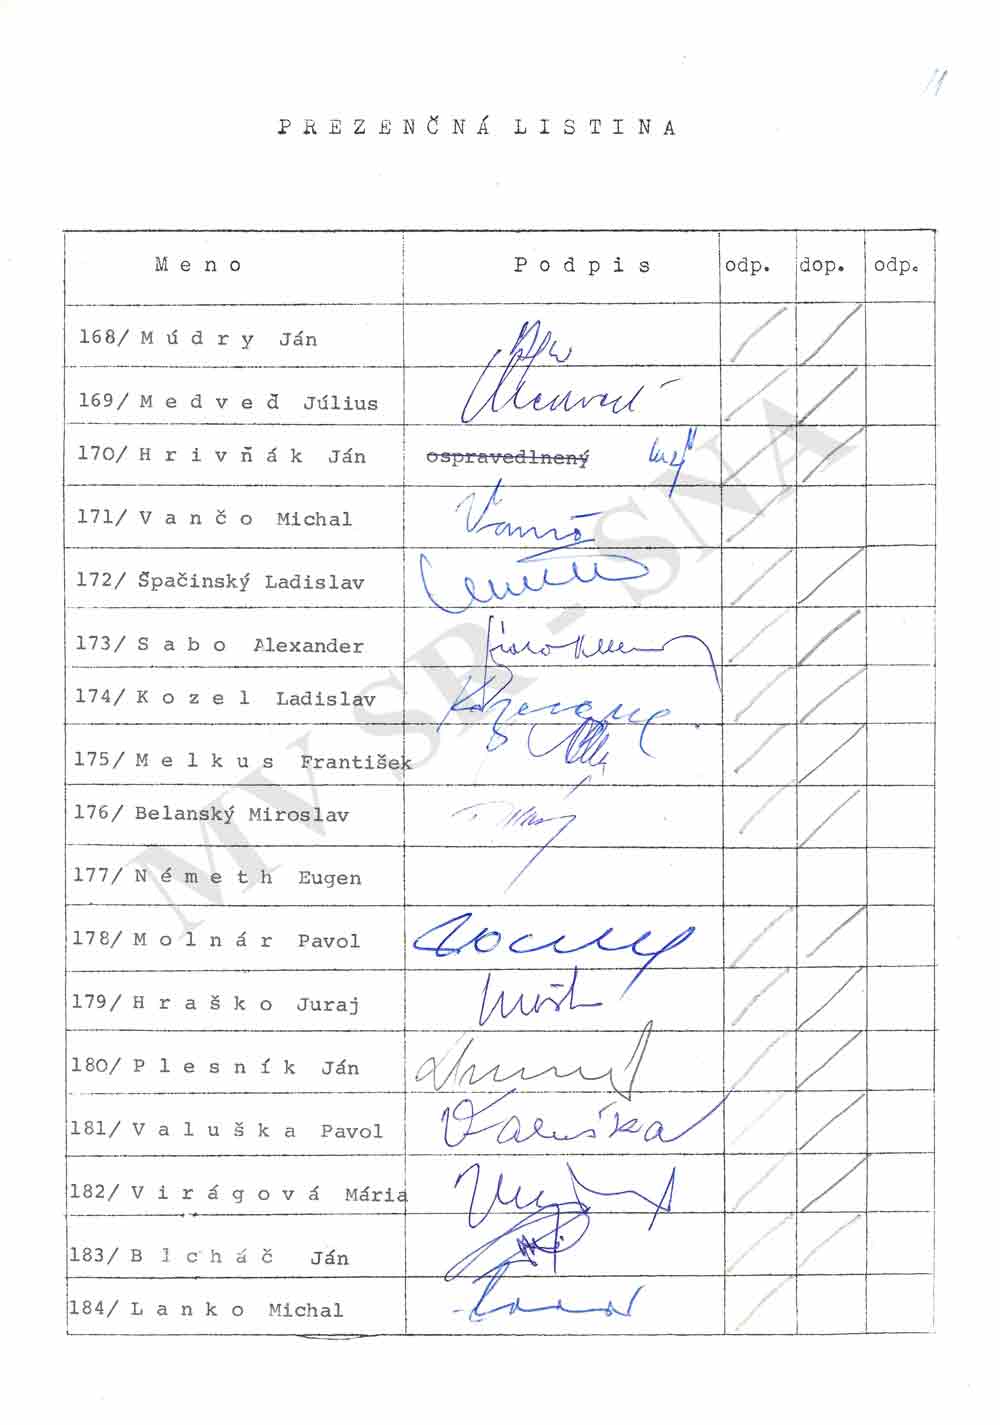 11
PREZENČNÁ LISTINA
Meno Podpis odp. dop. odp.
168/ Múdry Ján
169/ Medveď Július
170/ Hrivňák Ján ospravedlnený
171/ Vančo Michal Vančo
172/ Špačinský Ladislav
173/ Sabo Alexander
174/ Kozel Ladislav
175/ Melkus František
176/ Belanský Miroslav
177/ Németh Eugen
178/ Molnár Pavol
179/ Hraško Juraj
180/ Plesník Ján
181/ Valuška Pavol Valuška
182/ Virágová Mária
183/ Blcháč Ján
184/ Lanko Michal
MV SR - SNA